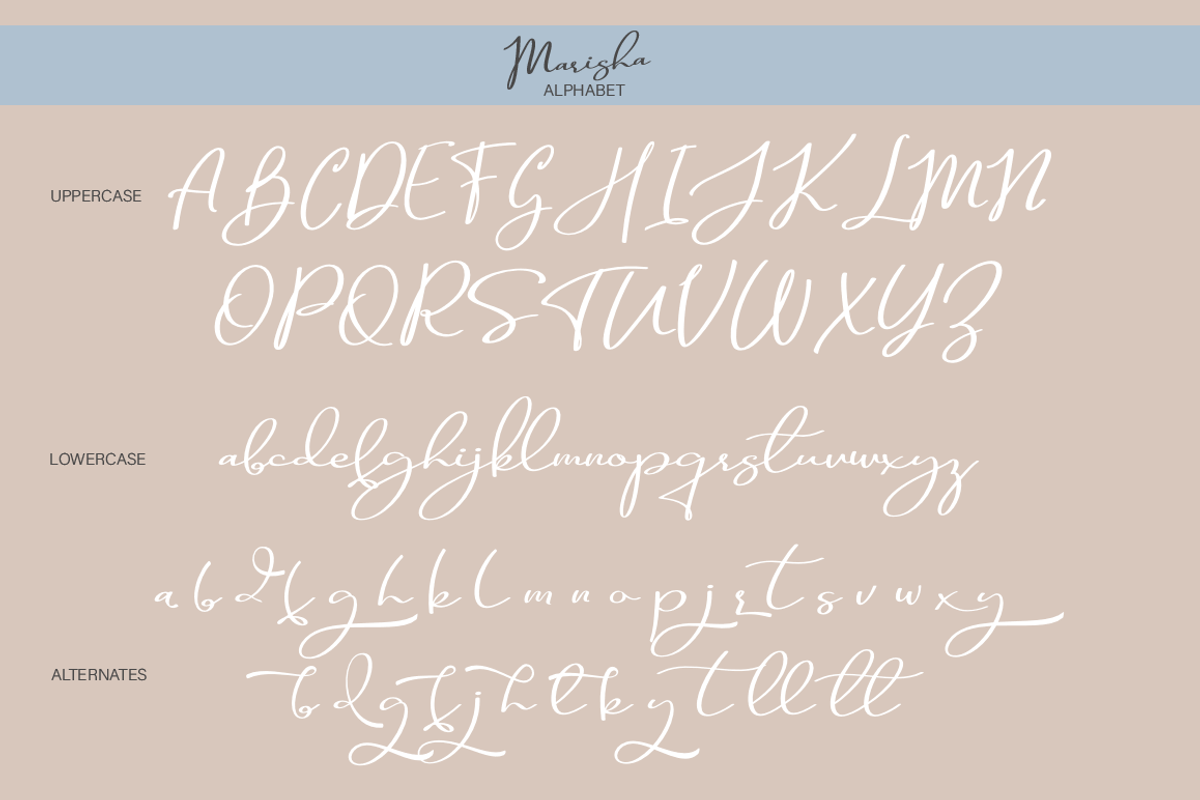 Marisha
ALPHABET
UPPERCASE
ABCDEFGHIJKLMN
OPQRSTUVWXYZ
LOWERCASE
abcdefghijklmnopqrstuvwxyz
a b d f g h k l m n o p j r t s v w x y
ALTERNATES
b d g f j h t k y t ll tt